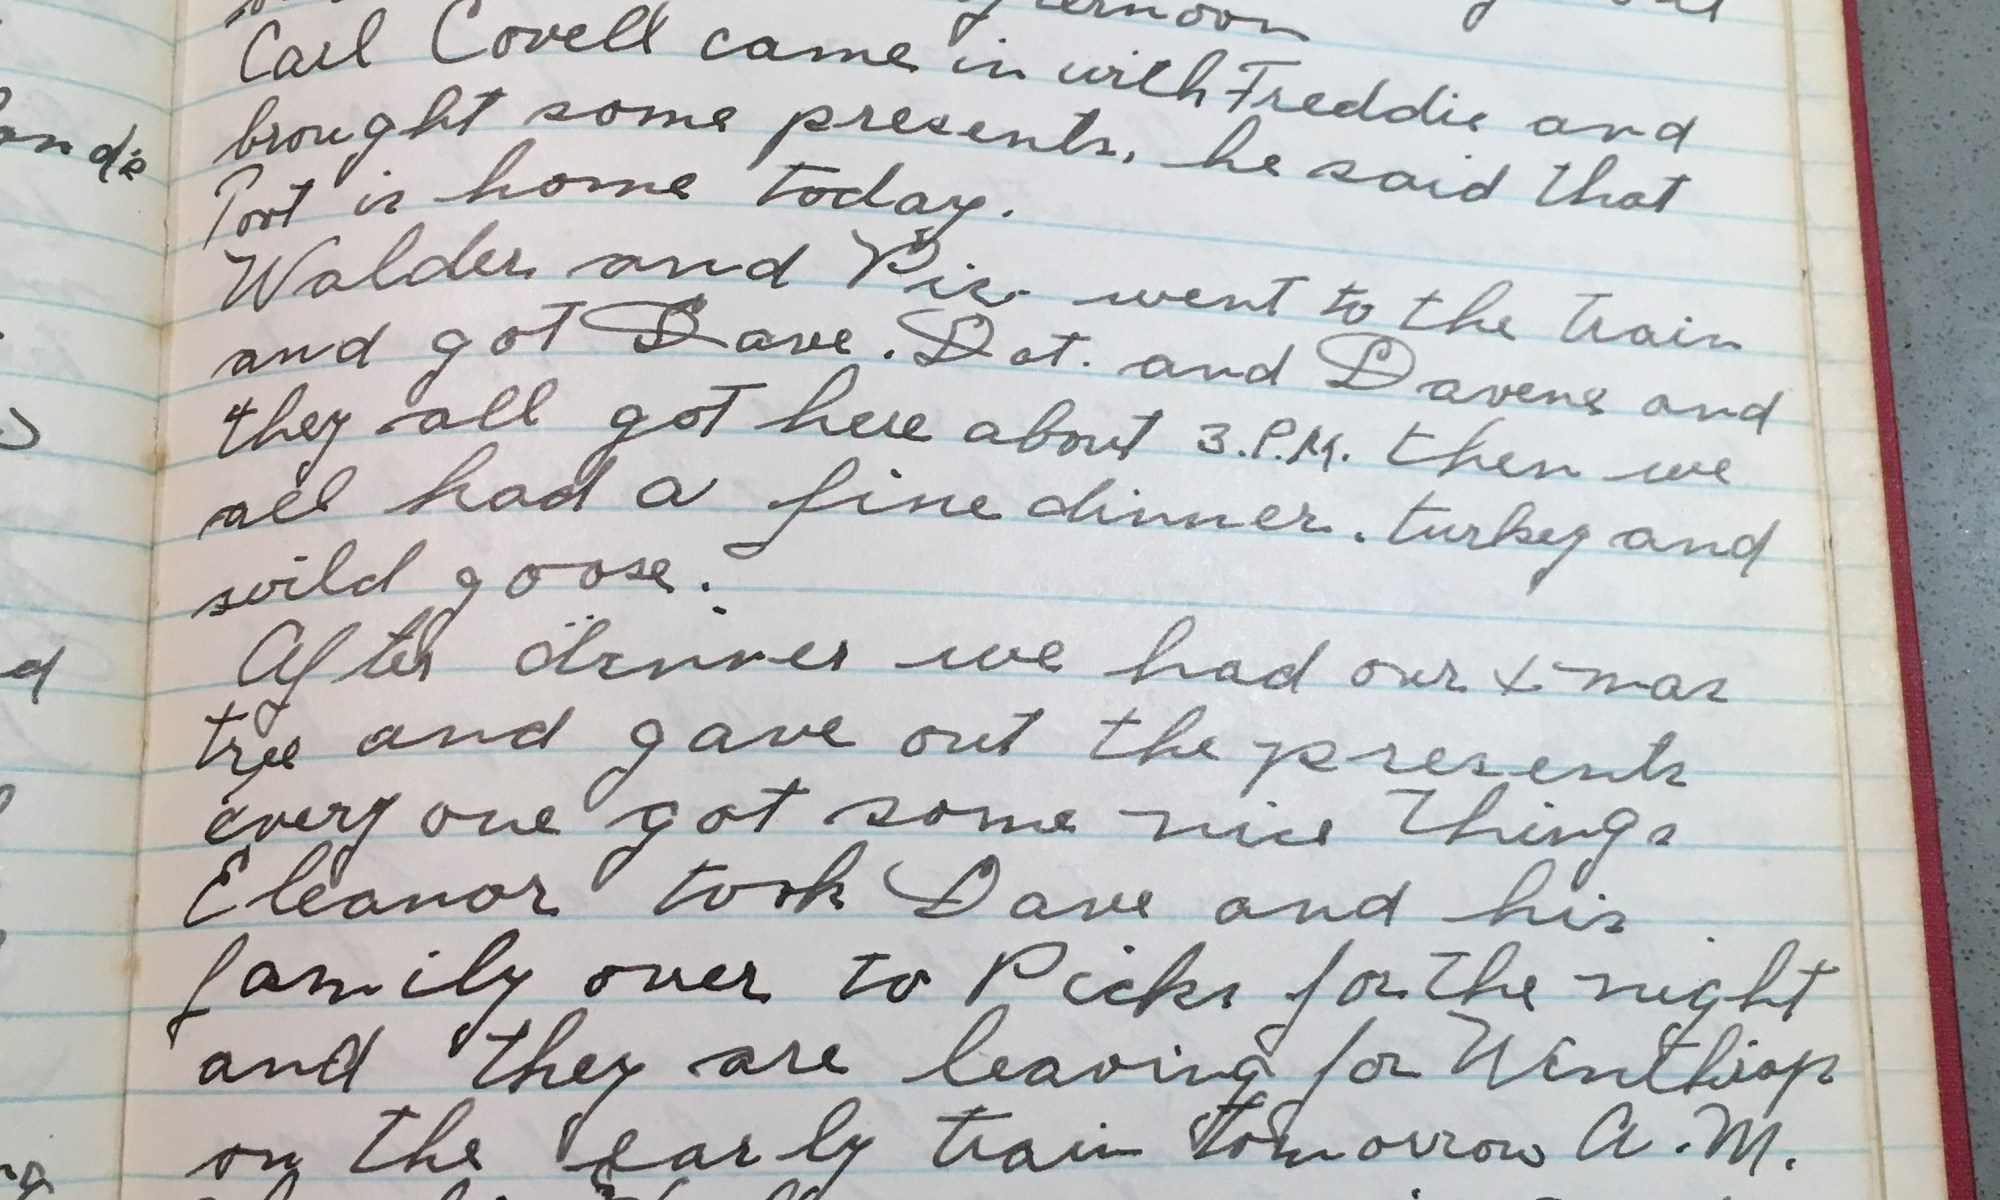 afternoon
Carl Covell came in with Freddie and
brought some presents, he said that
Port is home today.
Walder and Pic. went to the train
and got Dave. Dot. and Davene and
they all got here about 3.P.M. then we
all had a fine dinner. turkey and
wild goose.
After dinner we had our x-mas
tree and gave out the presents
every one got some nice things
Eleanor took Dave and his
family over to Picks for the night
and they are leaving for Winthrop
on the early train tomorrow A.M.